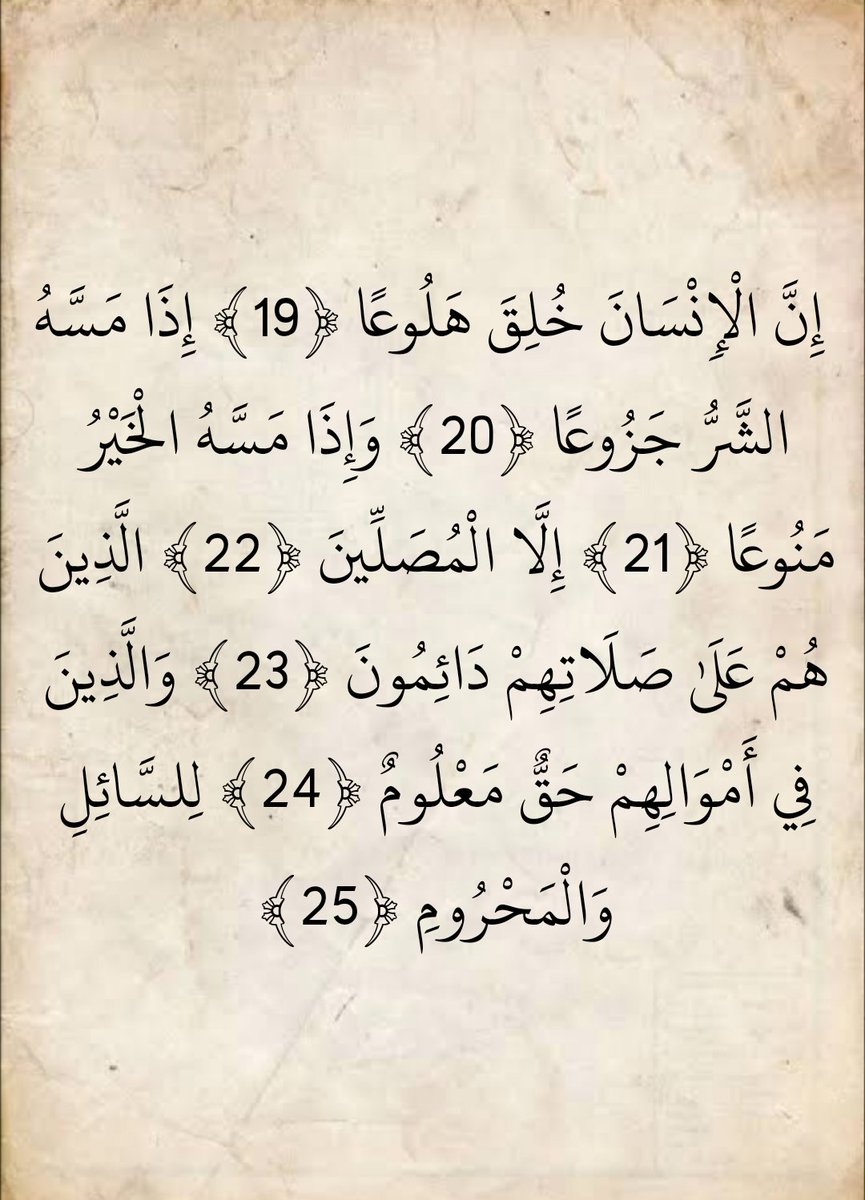 إِنَّ الْإِنْسَانَ خُلِقَ هَلُوعًا ﴿19﴾ إِذَا مَسَّهُ
الشَّرُّ جَزُوعًا ﴿20﴾ وَإِذَا مَسَّهُ الْخَيْرُ
مَنُوعًا ﴿21﴾ إِلَّا الْمُصَلِّينَ ﴿22﴾ الَّذِينَ
هُمْ عَلَىٰ صَلَاتِهِمْ دَائِمُونَ ﴿23﴾ وَالَّذِينَ
فِي أَمْوَالِهِمْ حَقٌّ مَعْلُومٌ ﴿24﴾ لِلسَّائِلِ
وَالْمَحْرُومِ ﴿25﴾